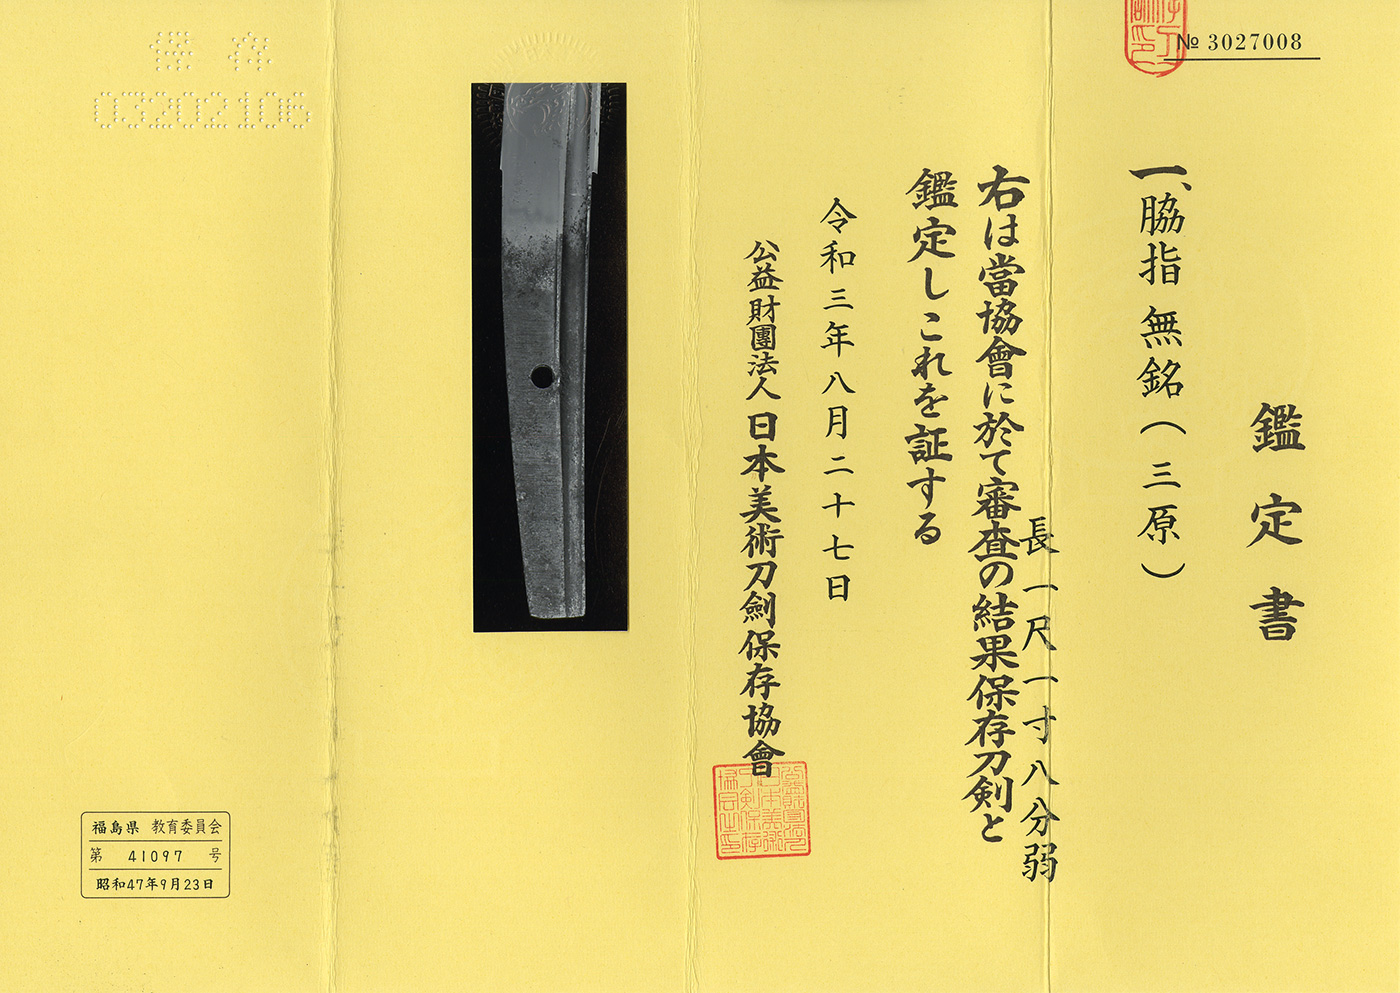 № 3027008
鑑定書
一、脇指 無銘(三原)
長一尺一寸八分弱
右は當協會に於て審査の結果保存刀剣と
鑑定しこれを証する
令和三年八月二十七日
公益財團法人日本美術刀劍保存協會
保存
03202106
福島県 教育委員会
第 41097 号
昭和47年9月23日